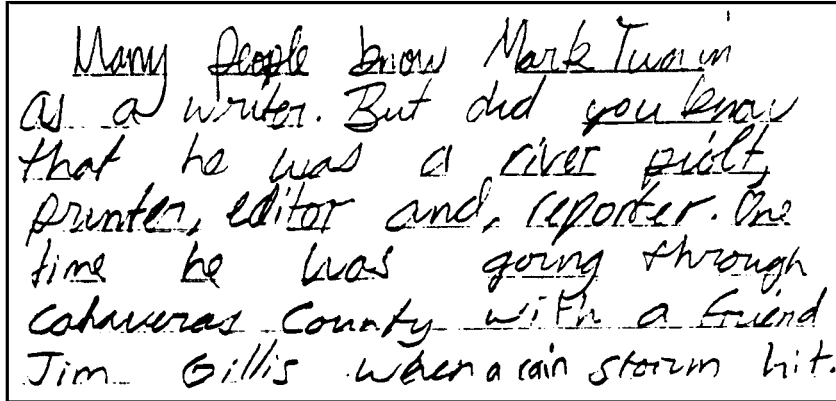 Many people know Mark Twain
as a writer. But did you know
that he was a river piolt,
printer, editor and, reporter. One
time he was going through
Calaveras County with a friend
Jim Gillis when a rain storm hit.